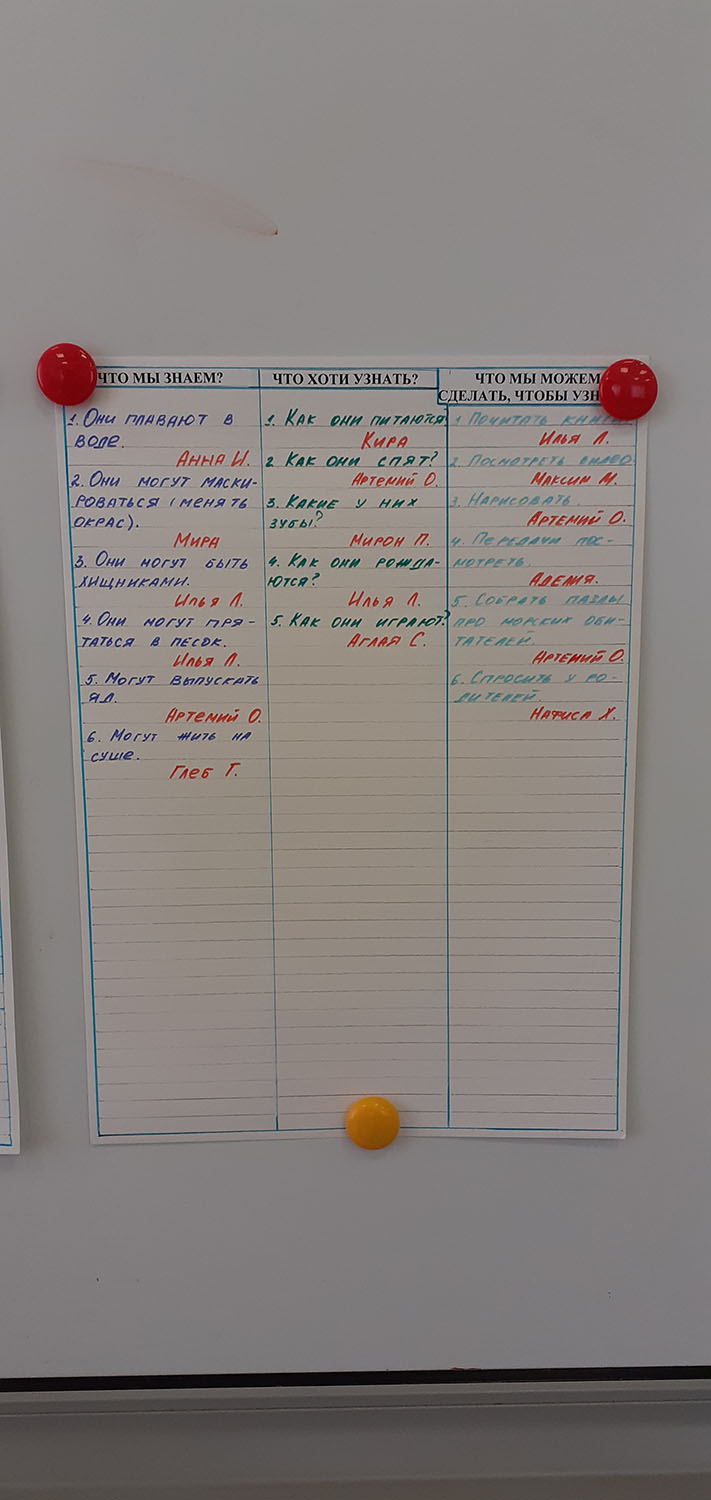 ЧТО МЫ ЗНАЕМ?
1. Они плавают в
воде.
Анна И.
2. Они могут маски-
роваться (менять
окрас).
Мира
3. Они могут быть
хищниками.
Илья Л.
4. Они могут пря-
таться в песок.
Илья Л.
5. Могут выпускать
яд.
Артемий О.
6. Могут жить на
суше.
Глеб Г.
ЧТО ХОТИ УЗНАТЬ?
1. Как они питаются?
Кира
2. Как они спят?
Артемий О.
3. Какие у них
зубы?
Мирон П.
4. Как они рожда-
ются?
Илья Л.
5. Как они играют?
Аглая С.
ЧТО МЫ МОЖЕМ
СДЕЛАТЬ, ЧТОБЫ УЗН
1 Почитать
Илья Л.
2. Посмотреть видео.
Максим М.
3. Нарисовать.
Артемий О.
4. Передачи пос-
мотреть.
Аделия.
5. Собрать пазлы
про морских оби-
тателей.
Артемий О.
6. Спросить у ро-
дителей.
Нафиса Х.